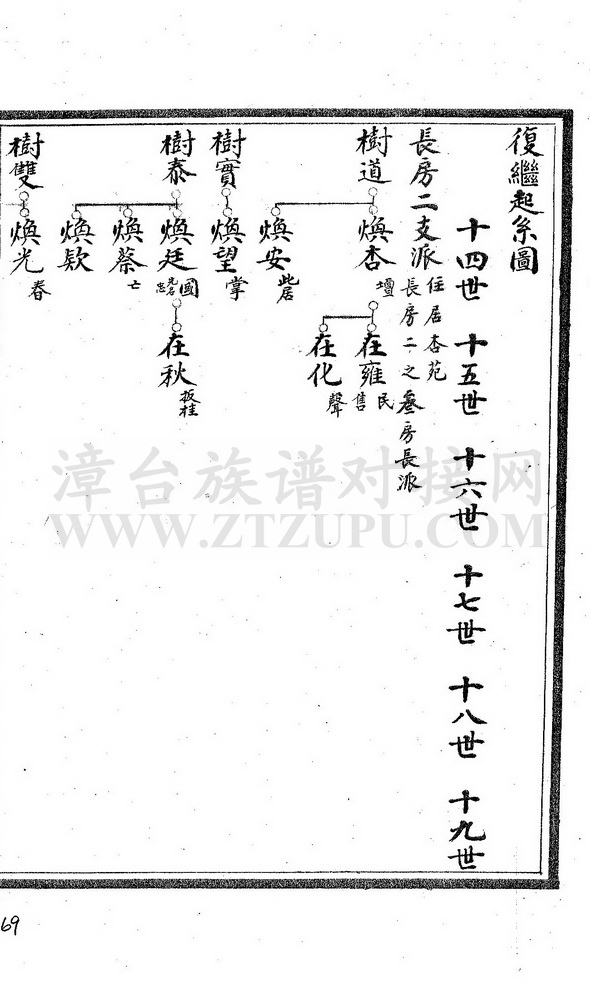 復繼起系圖
十四世 十五世 十六世 十七世 十八世 十九世
長房二支派
住居杏苑
長房二之叁房長派
樹道
煥杏 壇
在雍 民 售
在化 聲
煥安 此居
樹實
煥望 掌
樹泰
煥廷 國
在秋 板桂
煥蔡 亡
煥欵
樹雙
煥光 春
漳台族谱对接网
WWW.ZTZUPU.COM
69